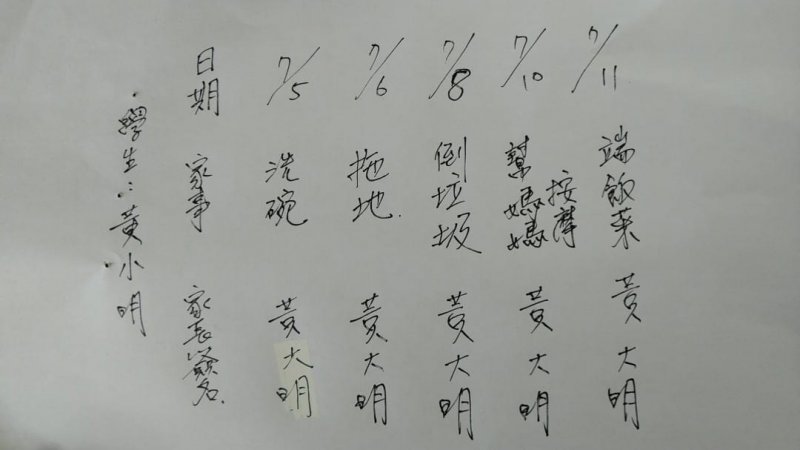 學生:黃小明
日期 家事 家長簽名
7/5 洗碗 黃大明
7/6 拖地. 黃大明
7/8 倒垃圾 黃大明
7/10 幫媽媽按摩 黃大明
7/11 端飯菜 黃大明